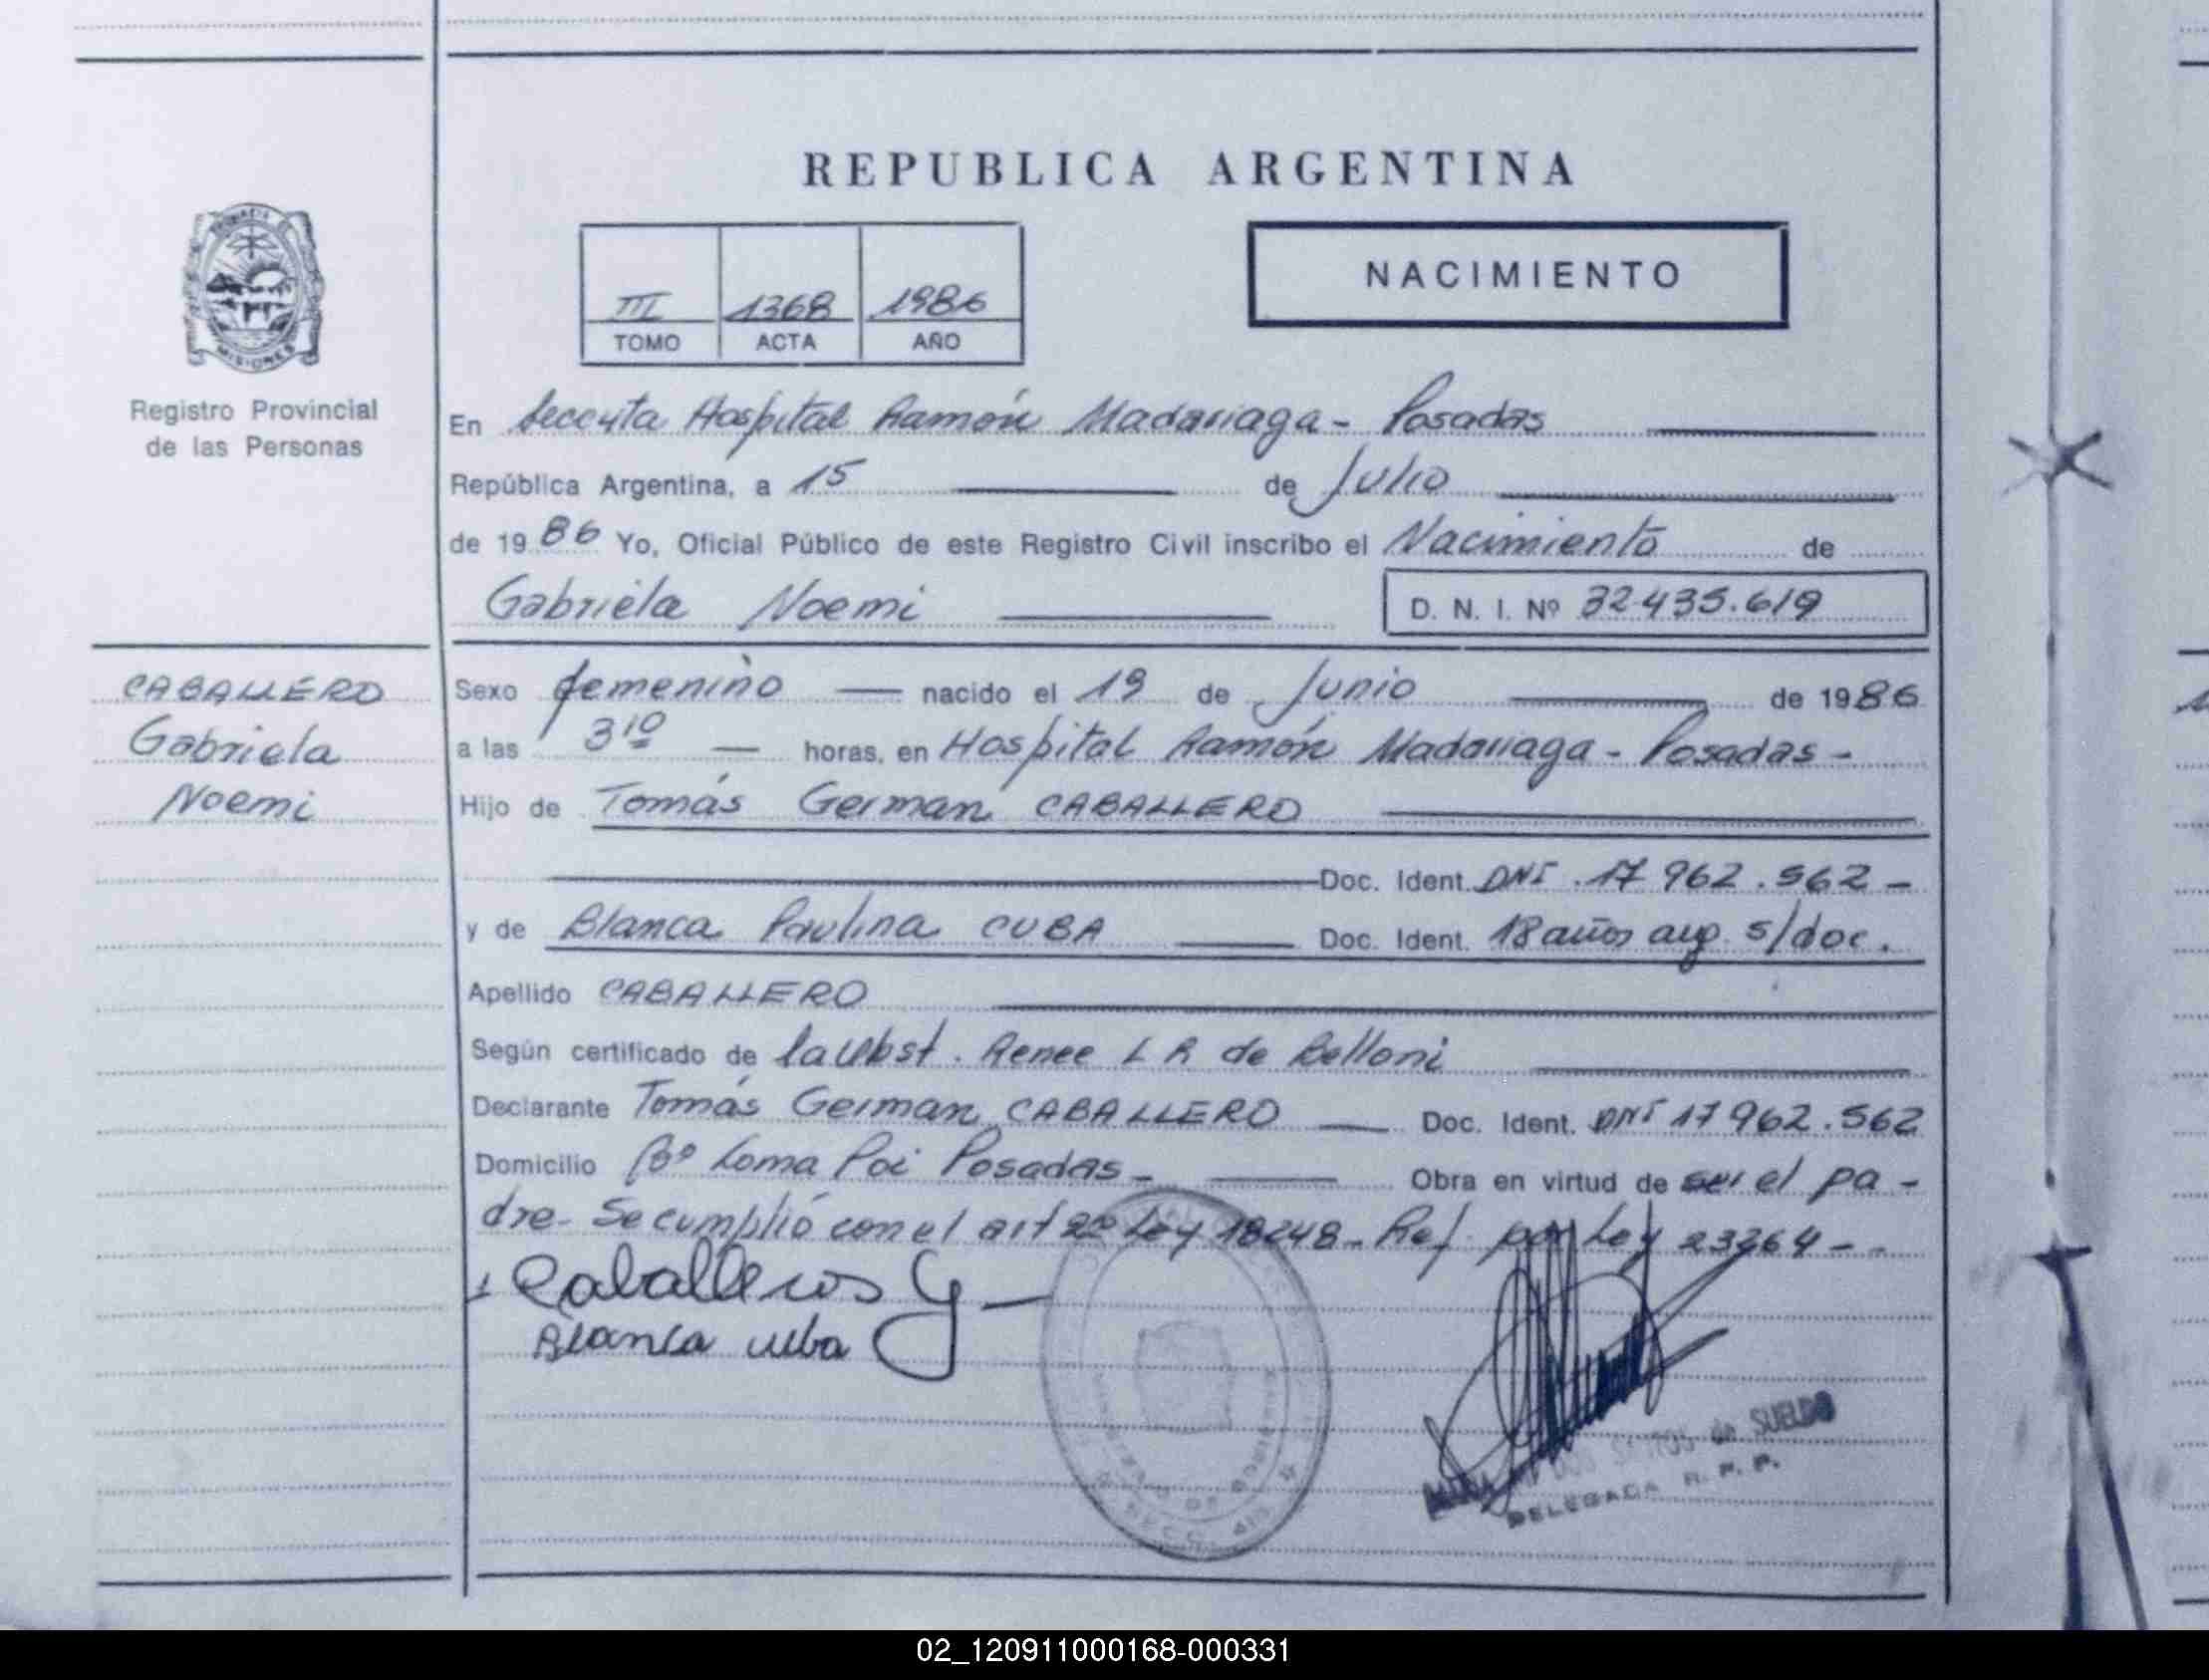 REPUBLICA ARGENTINA
III 1368 1986
TOMO ACTA AÑO
NACIMIENTO
MISIONES
Registro Provincial
de las Personas
En Seccyta Hospital Ramón Madariaga - Posadas
República Argentina, a 15 de Julio
de 1986 Yo, Oficial Público de este Registro Civil inscribo el Nacimiento de
Gabriela Noemi D. N. I. Nº 32.435.619
CABALLERO
Gabriela
Noemi
Sexo femenino nacido el 19 de Junio de 1986
a las 3 10 horas, en Hospital Ramón Madariaga - Posadas -
Hijo de Tomás German CABALLERO
Doc. Ident. DNI. 17 962.562 -
y de Blanca Paulina CUBA Doc. Ident. 18 años arg. s/doc.
Apellido CABALLERO
Según certificado de la Obst. Renee L R de Belloni
Declarante Tomás German CABALLERO Doc. Ident. DNI 17 962.562
Domicilio Bº Loma Poi Posadas - Obra en virtud de ser el pa -
dre - Se cumplió con el art 2º Ley 18248 - Ref. por Ley 23264 - -
Caballeros G
Blanca cuba
SANTOS de SUELDO
DELEGADA R. P. P.
02_120911000168-000331